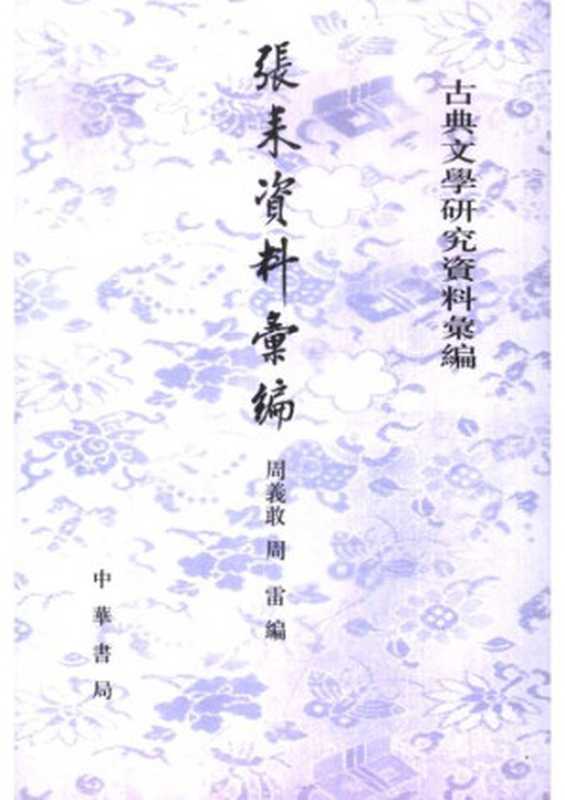 古典文學研究資料彙編
張耒資料彙編
周義敢 周 雷 編
中華書局